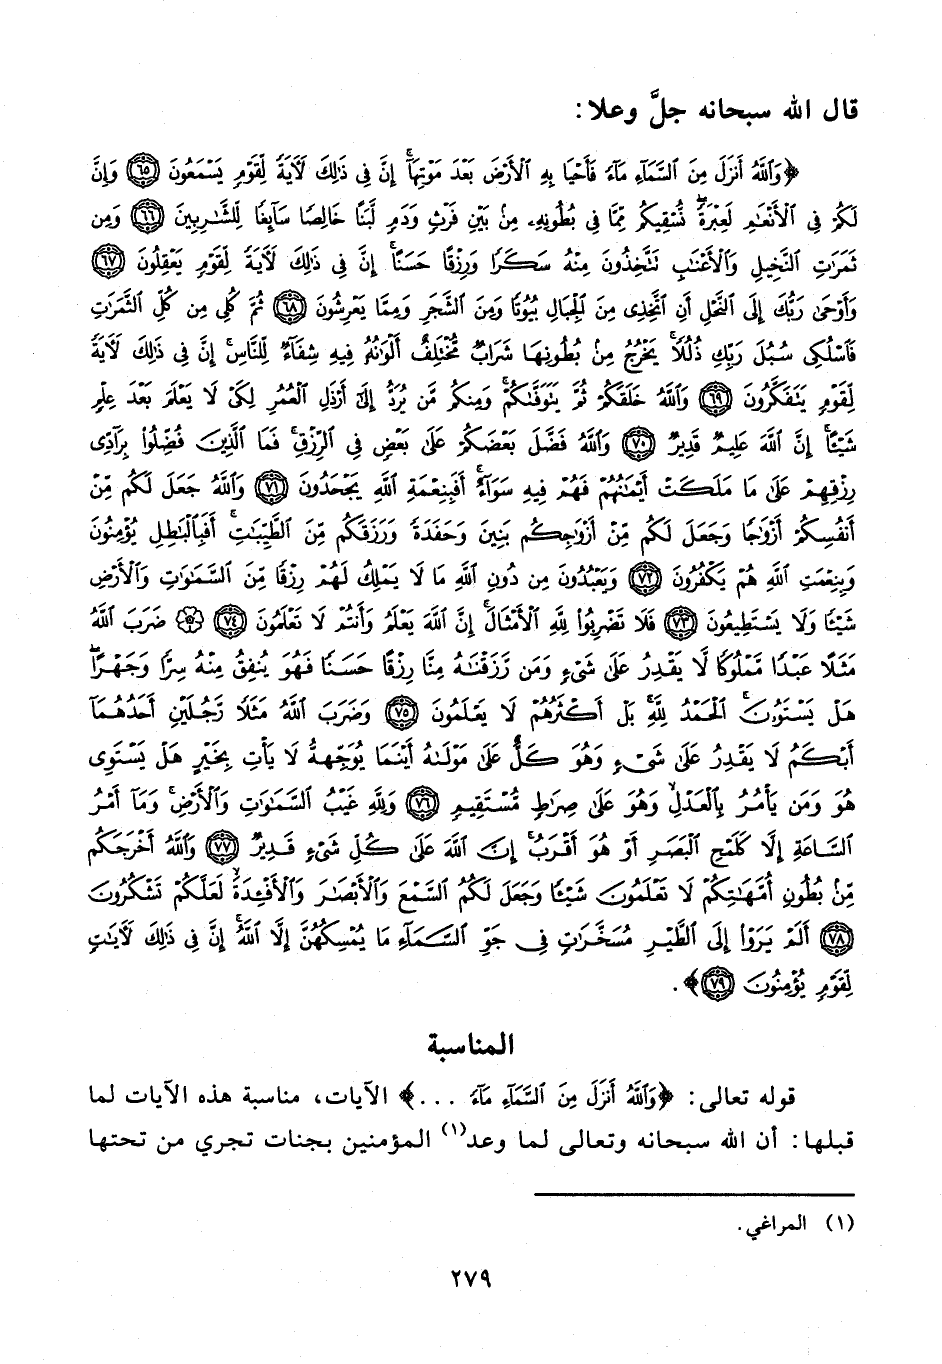 قال الله سبحانه جلَّ وعلا:
﴿وَٱللَّهُ أَنزَلَ مِنَ ٱلسَّمَآءِ مَآءً فَأَحْيَا بِهِ ٱلْأَرْضَ بَعْدَ مَوْتِهَآ ۚ إِنَّ فِى ذَٰلِكَ لَءَايَةً لِّقَوْمٍ يَسْمَعُونَ ٦٥ وَإِنَّ
لَكُمْ فِى ٱلْأَنْعَٰمِ لَعِبْرَةً ۖ نُّسْقِيكُم مِّمَّا فِى بُطُونِهِۦ مِنۢ بَيْنِ فَرْثٍ وَدَمٍ لَّبَنًا خَالِصًا سَآئِغًا لِّلشَّٰرِبِينَ ٦٦ وَمِن
ثَمَرَٰتِ ٱلنَّخِيلِ وَٱلْأَعْنَٰبِ تَتَّخِذُونَ مِنْهُ سَكَرًا وَرِزْقًا حَسَنًا ۗ إِنَّ فِى ذَٰلِكَ لَءَايَةً لِّقَوْمٍ يَعْقِلُونَ ٦٧
وَأَوْحَىٰ رَبُّكَ إِلَى ٱلنَّحْلِ أَنِ ٱتَّخِذِى مِنَ ٱلْجِبَالِ بُيُوتًا وَمِنَ ٱلشَّجَرِ وَمِمَّا يَعْرِشُونَ ٦٨ ثُمَّ كُلِى مِن كُلِّ ٱلثَّمَرَٰتِ
فَٱسْلُكِى سُبُلَ رَبِّكِ ذُلُلًا ۚ يَخْرُجُ مِنۢ بُطُونِهَا شَرَابٌ مُّخْتَلِفٌ أَلْوَٰنُهُۥ فِيهِ شِفَآءٌ لِّلنَّاسِ ۗ إِنَّ فِى ذَٰلِكَ لَءَايَةً
لِّقَوْمٍ يَتَفَكَّرُونَ ٦٩ وَٱللَّهُ خَلَقَكُمْ ثُمَّ يَتَوَفَّىٰكُمْ ۚ وَمِنكُم مَّن يُرَدُّ إِلَىٰٓ أَرْذَلِ ٱلْعُمُرِ لِكَىْ لَا يَعْلَمَ بَعْدَ عِلْمٍ
شَيْـًٔا ۚ إِنَّ ٱللَّهَ عَلِيمٌ قَدِيرٌ ٧٠ وَٱللَّهُ فَضَّلَ بَعْضَكُمْ عَلَىٰ بَعْضٍ فِى ٱلرِّزْقِ ۚ فَمَا ٱلَّذِينَ فُضِّلُوا۟ بِرَآدِّى
رِزْقِهِمْ عَلَىٰ مَا مَلَكَتْ أَيْمَٰنُهُمْ فَهُمْ فِيهِ سَوَآءٌ ۚ أَفَبِنِعْمَةِ ٱللَّهِ يَجْحَدُونَ ٧١ وَٱللَّهُ جَعَلَ لَكُم مِّنْ
أَنفُسِكُمْ أَزْوَٰجًا وَجَعَلَ لَكُم مِّنْ أَزْوَٰجِكُم بَنِينَ وَحَفَدَةً وَرَزَقَكُم مِّنَ ٱلطَّيِّبَٰتِ ۚ أَفَبِٱلْبَٰطِلِ يُؤْمِنُونَ
وَبِنِعْمَتِ ٱللَّهِ هُمْ يَكْفُرُونَ ٧٢ وَيَعْبُدُونَ مِن دُونِ ٱللَّهِ مَا لَا يَمْلِكُ لَهُمْ رِزْقًا مِّنَ ٱلسَّمَٰوَٰتِ وَٱلْأَرْضِ
شَيْـًٔا وَلَا يَسْتَطِيعُونَ ٧٣ فَلَا تَضْرِبُوا۟ لِلَّهِ ٱلْأَمْثَالَ ۚ إِنَّ ٱللَّهَ يَعْلَمُ وَأَنتُمْ لَا تَعْلَمُونَ ٧٤ ۞ ضَرَبَ ٱللَّهُ
مَثَلًا عَبْدًا مَّمْلُوكًا لَّا يَقْدِرُ عَلَىٰ شَىْءٍ وَمَن رَّزَقْنَٰهُ مِنَّا رِزْقًا حَسَنًا فَهُوَ يُنفِقُ مِنْهُ سِرًّا وَجَهْرًا ۖ
هَلْ يَسْتَوُۥنَ ۚ ٱلْحَمْدُ لِلَّهِ ۚ بَلْ أَكْثَرُهُمْ لَا يَعْلَمُونَ ٧٥ وَضَرَبَ ٱللَّهُ مَثَلًا رَّجُلَيْنِ أَحَدُهُمَآ
أَبْكَمُ لَا يَقْدِرُ عَلَىٰ شَىْءٍ وَهُوَ كَلٌّ عَلَىٰ مَوْلَىٰهُ أَيْنَمَا يُوَجِّههُّ لَا يَأْتِ بِخَيْرٍ ۖ هَلْ يَسْتَوِى
هُوَ وَمَن يَأْمُرُ بِٱلْعَدْلِ ۙ وَهُوَ عَلَىٰ صِرَٰطٍ مُّسْتَقِيمٍ ٧٦ وَلِلَّهِ غَيْبُ ٱلسَّمَٰوَٰتِ وَٱلْأَرْضِ ۚ وَمَآ أَمْرُ
ٱلسَّاعَةِ إِلَّا كَلَمْحِ ٱلْبَصَرِ أَوْ هُوَ أَقْرَبُ ۚ إِنَّ ٱللَّهَ عَلَىٰ كُلِّ شَىْءٍ قَدِيرٌ ٧٧ وَٱللَّهُ أَخْرَجَكُم
مِّنۢ بُطُونِ أُمَّهَٰتِكُمْ لَا تَعْلَمُونَ شَيْـًٔا وَجَعَلَ لَكُمُ ٱلسَّمْعَ وَٱلْأَبْصَٰرَ وَٱلْأَفْـِٔدَةَ ۙ لَعَلَّكُمْ تَشْكُرُونَ
٧٨ أَلَمْ يَرَوْا۟ إِلَى ٱلطَّيْرِ مُسَخَّرَٰتٍ فِى جَوِّ ٱلسَّمَآءِ مَا يُمْسِكُهُنَّ إِلَّا ٱللَّهُ ۗ إِنَّ فِى ذَٰلِكَ لَءَايَٰتٍ
لِّقَوْمٍ يُؤْمِنُونَ ٧٩﴾.
المناسبة
قوله تعالى: ﴿وَٱللَّهُ أَنزَلَ مِنَ ٱلسَّمَآءِ مَآءً ...﴾ الآيات، مناسبة هذه الآيات لما
قبلها: أن الله سبحانه وتعالى لما وعد(١) المؤمنين بجنات تجري من تحتها
(١) المراغي.
٢٧٩